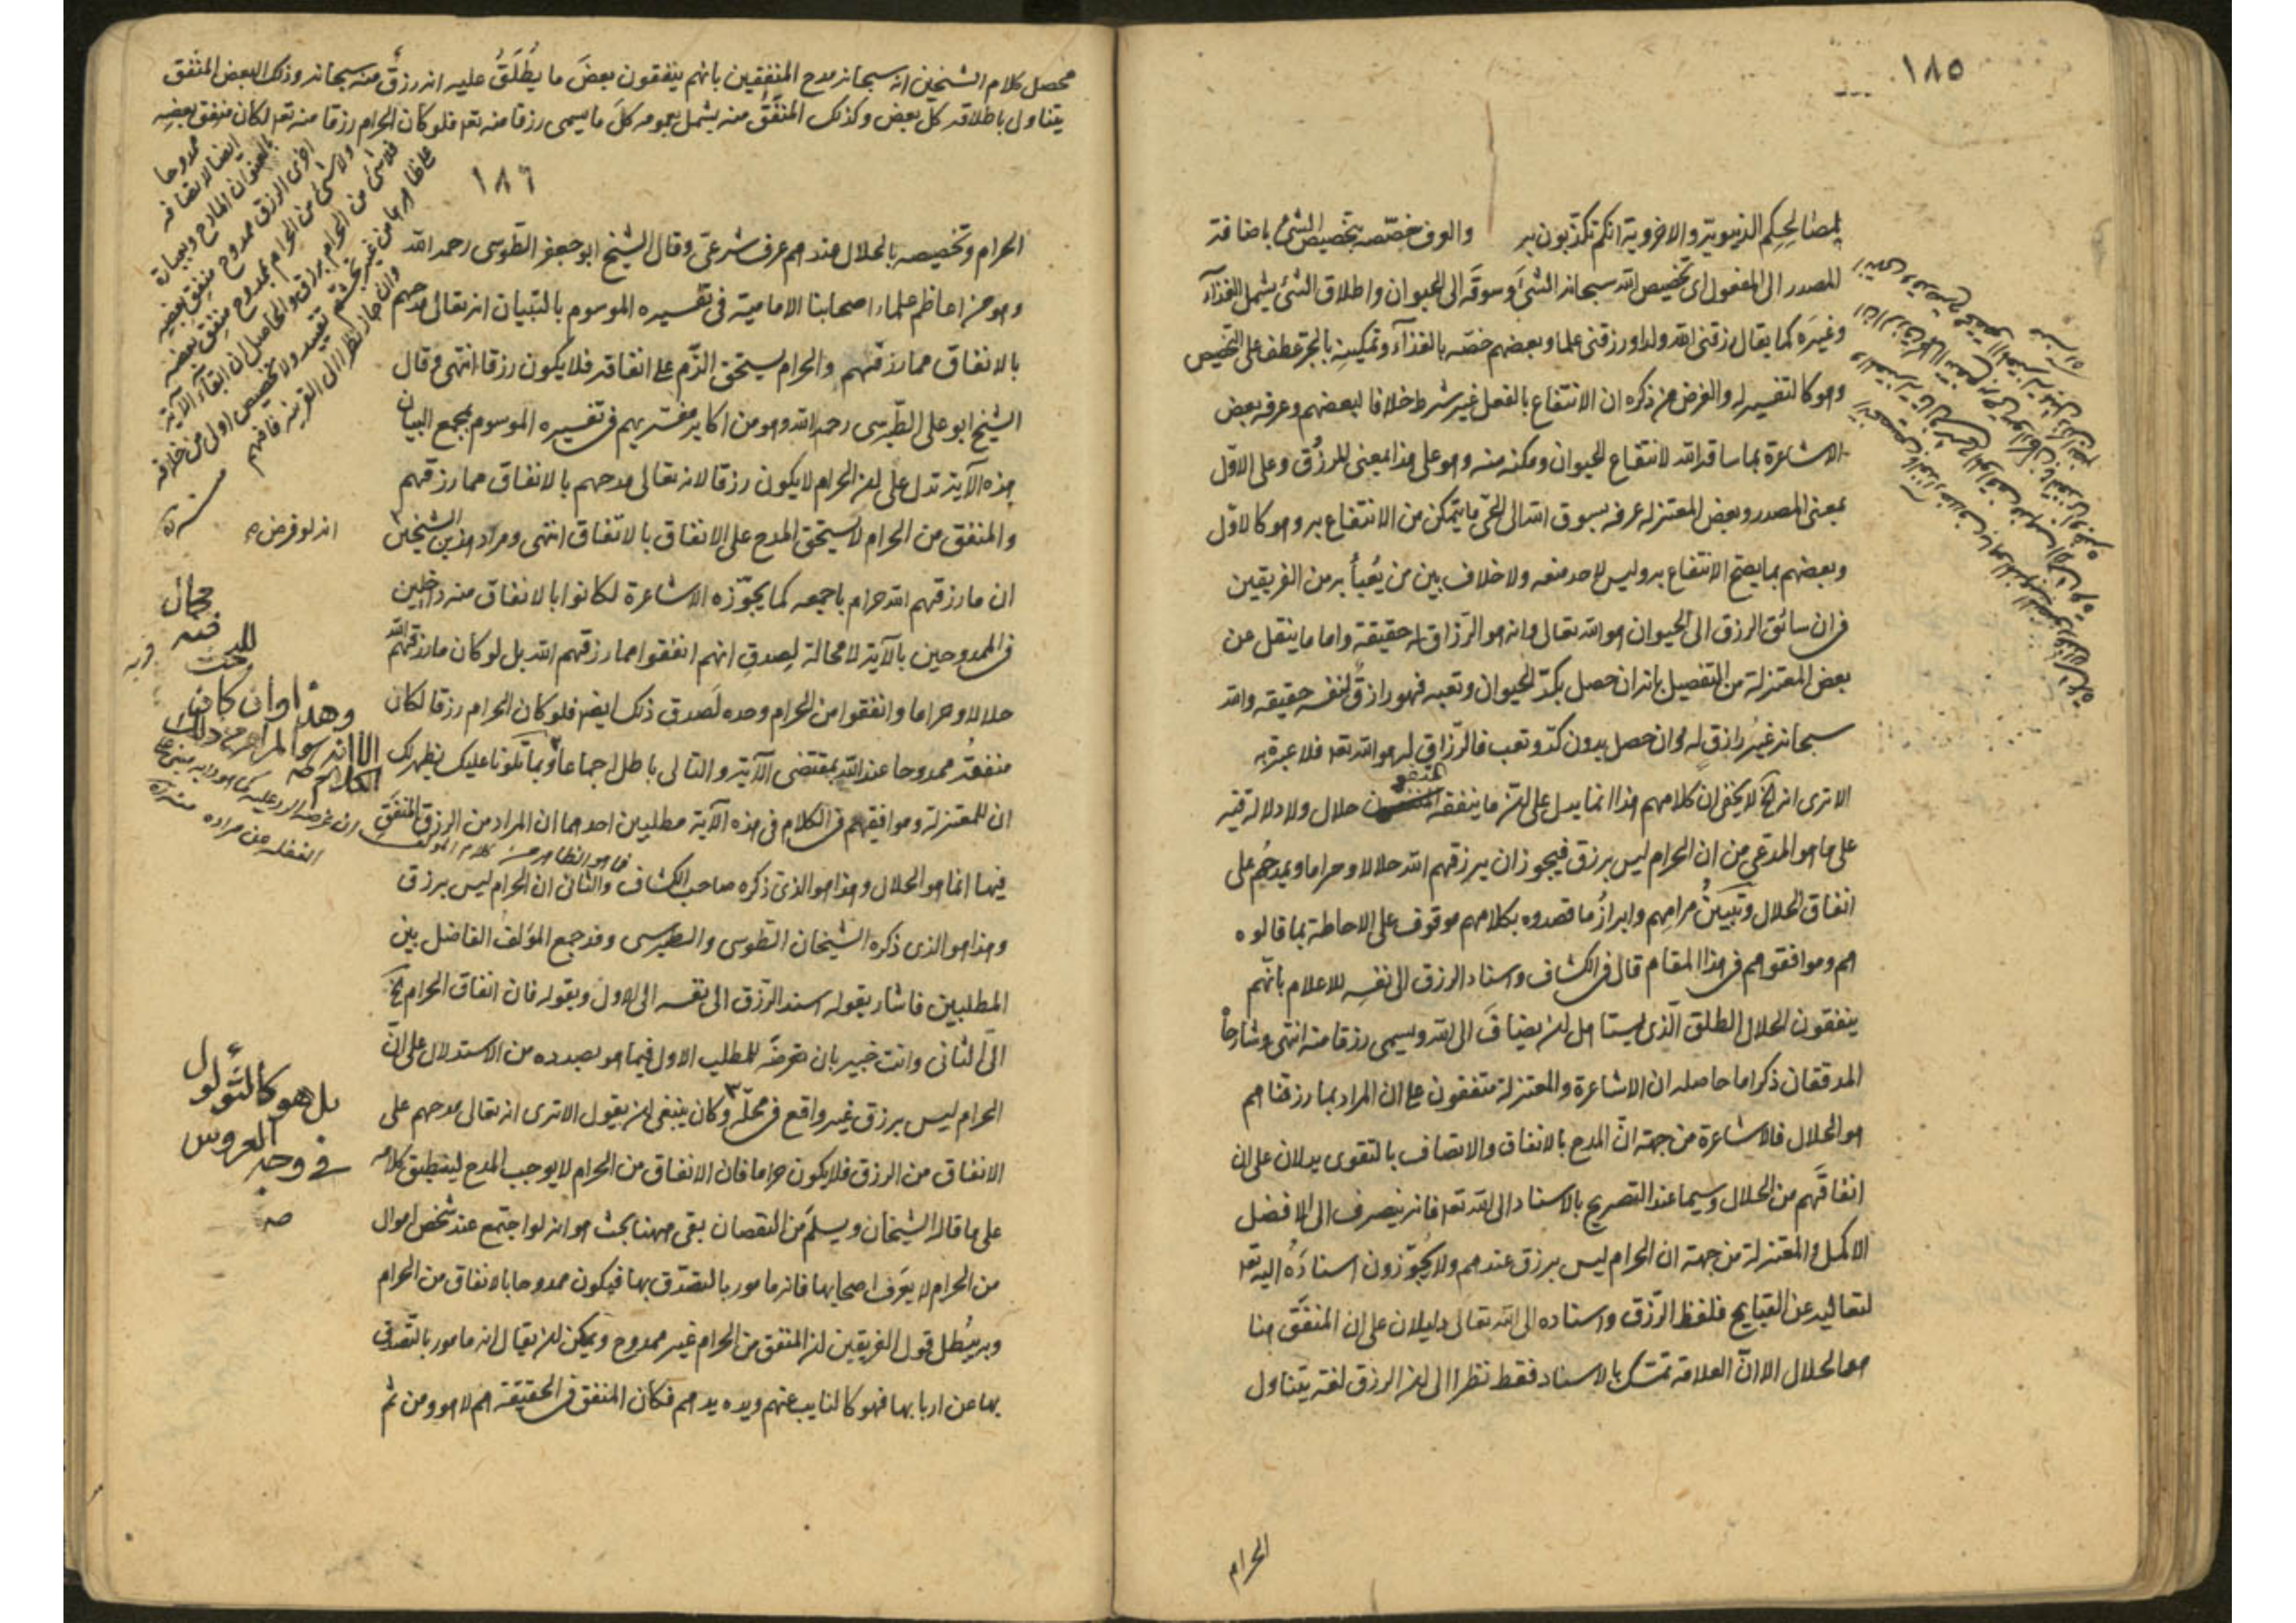 ١٨٥
بمصالحكم الدنيوية والاخروية انكم تكذبون به والعرف خصصه بتخصيص الشئ باضافة
المصدر الى المفعول اى تخصيص الله سبحانه الشئ وسوقه الى الحيوان واطلاق الشئ يشمل الغذآء
وغيره كما يقال رزقنى الله ولدا ورزقنى علما وبعضهم خصه بالغذآء وتمكينه بالجر عطف على التخصيص
وهو كالتفسير له والغرض من ذكره ان الانتفاع بالفعل غير شرط خلافا لبعضهم وعرفه بعض
الاشاعرة بما ساقه الله لانتفاع الحيوان ومكنه منه وهو على هذا بمعنى المرزوق وعلى الاول
بمعنى المصدر وبعض المعتزلة عرفه بسوق الله الى الحى ما يتمكن من الانتفاع به وهو كالاول
وبعضهم بما يصح الانتفاع به وليس لاحد منعه ولا خلاف بين من يُعبأ به من الفريقين
فى ان سائق الرزق الى الحيوان هو الله تعالى وانه هو الرزاق له حقيقة واما ما ينقل عن
بعض المعتزلة من التفصيل بانه ان حصل بكد الحيوان وتعبه فهو رازق لنفسه حقيقة والله
سبحانه غير رازق له وان حصل بدون كد وتعب فالرزاق له هو الله تعه فلا عبرة به
الا ترى انه الخ لا يخفى ان كلامهم هذا انما يدل على ان ما ينفقه المتقون حلال ولا دلالة فيه
على ما هو المدعى من ان الحرام ليس برزق فيجوز ان يرزقهم الله حلالا وحراما ويمدحهم على
انفاق الحلال وتبيين مرامهم وابراز ما قصدوه بكلامهم موقوف على الاحاطة بما قالوه
هم وموافقوهم فى هذا المقام قال فى الكشاف واسناد الرزق الى نفسه للاعلام بانهم
ينفقون الحلال الطلق الذى يستاهل ان يضاف الى الله ويسمى رزقا منه انتهى وشارحاه
المدققان ذكرا ما حاصله ان الاشاعرة والمعتزلة متفقون على ان المراد بما رزقنا هم
هو الحلال فالاشاعرة من جهة ان المدح بالانفاق والاتصاف بالتقوى يدلان على ان
انفاقهم من الحلال وسيما عند التصريح بالاسناد الى الله تعه فانه ينصرف الى الافضل
الاكمل والمعتزلة من جهة ان الحرام ليس برزق عندهم ولا يجوزون اسناده اليه تعه
لتعاليه عن القبايح فلفظ الرزق واسناده الى الله تعالى دليلان على ان المنفق هنا
هو الحلال الا ان العلامة تمسك بالاسناد فقط نظرا الى ان الرزق لغة يتناول
الحرام
محصل كلام الشيخين انه سبحانه مدح المنفقين بانهم ينفقون بعض ما يُطلَقُ عليه انه رزق منه سبحانه وذلك البعض المنفق
يتناول باطلاقه كل بعض وكذلك المنفَق منه يشمل بعمومه كل ما يسمى رزقا منه تعه فلو كان الحرام رزقا منه تعه لكان منفق بعضه
ممدوحا
ايضا لاتصافه
بالعنوان المادح وبعبارة
اخرى الرزق ممدوح منفق بعضه
ولا شئ من الحرام بممدوح منفق بعضه
فلا شئ من الحرام برزق والحاصل ان ابقآء الآية
على ظاهرها من غير تجشم تقييد ولا تخصيص اولى من خلافه
وان جاز نظرا الى القرينة فافهم
١٨٦
الحرام وتخصيصه بالحلال عندهم عرف شرعى وقال الشيخ ابو جعفر الطوسى رحمه الله
وهو من اعاظم علماء اصحابنا الامامية فى تفسيره الموسوم بالتبيان انه تعالى مدحهم
بالانفاق مما رزقهم والحرام يستحق الذم على انفاقه فلا يكون رزقا انتهى وقال
الشيخ ابو على الطبرسى رحمه الله وهو من اكابر مفسريهم فى تفسيره الموسوم بمجمع البيان
هذه الآية تدل على ان الحرام لا يكون رزقا لانه تعالى مدحهم بالانفاق مما رزقهم
والمنفق من الحرام لا يستحق المدح على الانفاق بالاتفاق انتهى ومراد هذين الشيخين
انه لو فرض
ان ما رزقهم الله حرام باجمعه كما يجوزه الاشاعرة لكانوا بالانفاق منه داخلين
فى الممدوحين بالآية لا محالة لصدق انهم انفقوا مما رزقهم الله بل لو كان ما رزقهم الله
حلالا وحراما وانفقوا من الحرام وحده لصدق ذلك ايضا فلو كان الحرام رزقا لكان
منفقه ممدوحا عند الله بمقتضى الآية والتالى باطل اجماعا وبما تلونا عليك يظهر لك
ان للمعتزلة وموافقيهم فى الكلام فى هذه الآية مطلبين احدهما ان المراد من الرزق المنفق
فيها انما هو الحلال وهذا هو الذى ذكره صاحب الكشاف والثانى ان الحرام ليس برزق
وهذا هو الذى ذكره الشيخان الطوسى والطبرسى وقد جمع المؤلف الفاضل بين
المطلبين فاشار بقوله اسند الرزق الى نفسه الى الاول وبقوله فان انفاق الحرام الخ
الى الثانى وانت خبير بان تعرضه للمطلب الاول فيما هو بصدده من الاستدلال على ان
الحرام ليس برزق غير واقع فى محله وكان ينبغى ان يقول الا ترى انه تعالى مدحهم على
الانفاق من الرزق فلا يكون حراما فان الانفاق من الحرام لا يوجب المدح لينطبق كلامه
على ما قاله الشيخان ويسلم من النقصان بقى ههنا بحث هو انه لو اجتمع عند شخص اموال
من الحرام لا يعرف اصحابها فانه مامور بالتصدق بها فيكون ممدوحا بالانفاق من الحرام
وبه يبطل قول الفريقين ان المنفق من الحرام غير ممدوح ويمكن ان يقال انه مامور بالتصدق
بها عن اربابها فهو كالنايب عنهم ويده يدهم فكان المنفق فى الحقيقة هم لا هو ومن ثم
مجال
للبحث
فيه
وهذا وان كان
الا انه
بل هو كالثؤلول
فى وجه العروس